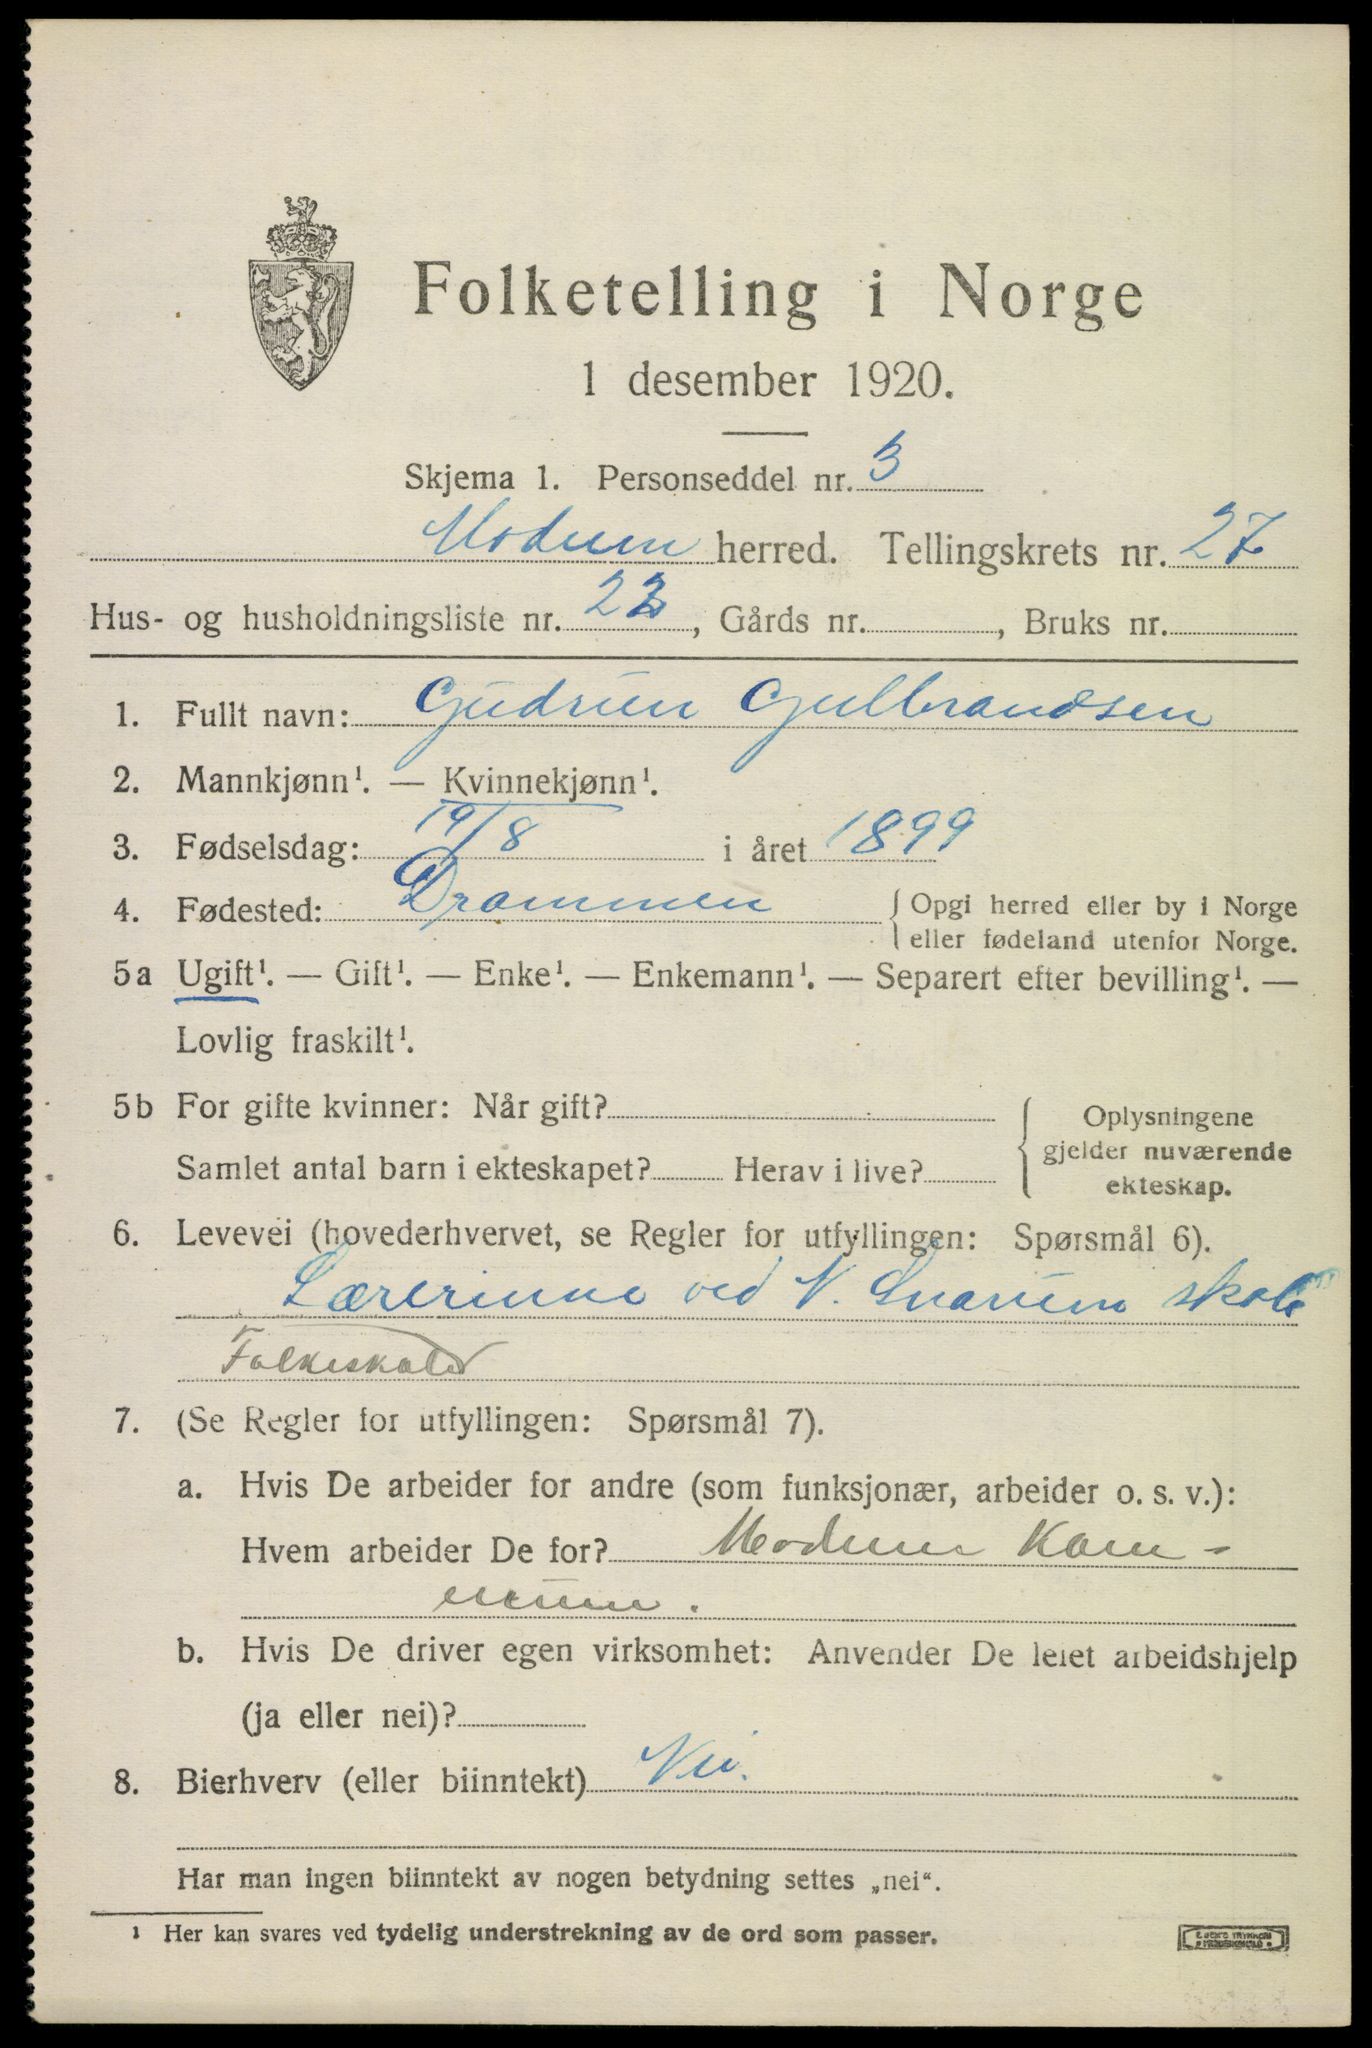 Folketelling i Norge
1 desember 1920.
Skjema 1. Personseddel nr. 3
Modum herred. Tellingskrets nr. 27
Hus- og husholdningsliste nr. 22, Gårds nr. , Bruks nr.
1. Fullt navn: Gudrun Gulbrandsen
2. Mannkjønn¹. — Kvinnekjønn¹.
3. Fødselsdag: 19/8 i året 1899
4. Fødested: Drammen { Opgi herred eller by i Norge
eller fødeland utenfor Norge.
5a Ugift¹. — Gift¹. — Enke¹. — Enkemann¹. — Separert efter bevilling¹. —
Lovlig fraskilt¹.
5b For gifte kvinner: Når gift?
Samlet antal barn i ekteskapet? Herav i live?
Oplysningene
gjelder nuværende
ekteskap.
6. Levevei (hovederhvervet, se Regler for utfyllingen: Spørsmål 6).
Lærerinne ved N. Snarum skole
Folkeskole
7. (Se Regler for utfyllingen: Spørsmål 7).
a. Hvis De arbeider for andre (som funksjonær, arbeider o. s. v.):
Hvem arbeider De for? Modum Kom-
mune.
b. Hvis De driver egen virksomhet: Anvender De leiet arbeidshjelp
(ja eller nei)?
8. Bierhverv (eller biinntekt) Nei.
Har man ingen biinntekt av nogen betydning settes „nei“.
¹ Her kan svares ved tydelig understrekning av de ord som passer.